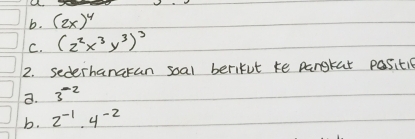 a
b. (2x)⁴
c. (2²x³y³)³
2. sederhanakan soal berikut ke pangkat positif
a. 3⁻²
b. 2⁻¹.4⁻²